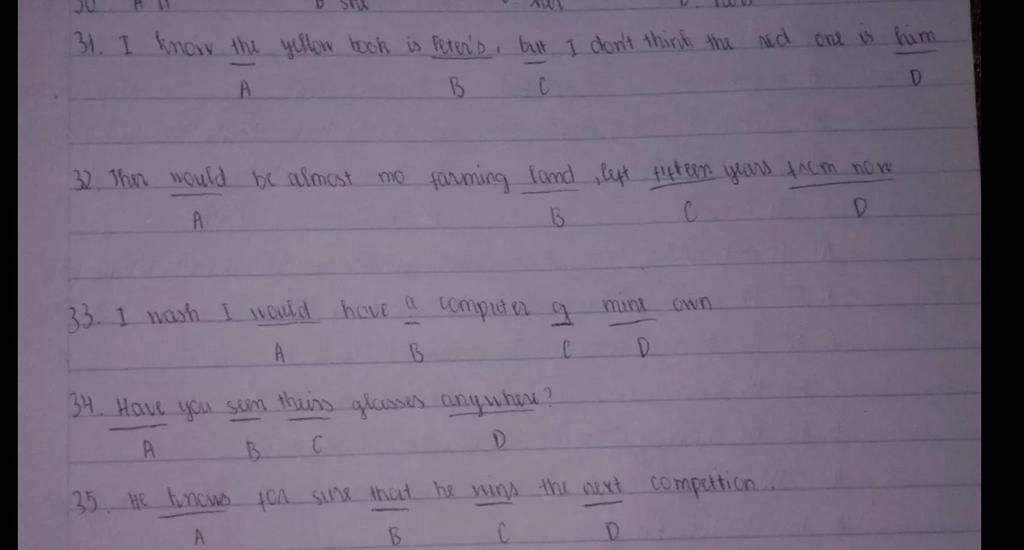 31. I know the yellow book is Peter's, but I don't think the red one is him
A B C D
32. Ther would be almost no farming land, left fifteen years from now
A B C D
33. I wash I would have a computer of mine own
A B C D
34. Have you seen theirs glasses anywhere?
A B C D
35. He knows for sure that he wins the next compettion.
A B C D